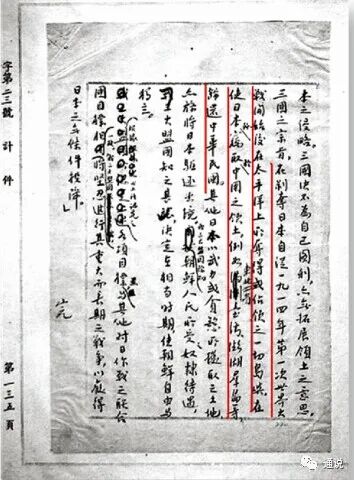 本之侵略,三國決不為自己圖利,亦無拓展領土之意思。
三國之宗旨在剝奪日本自從一九一四年第一次世界大
戰開始後在太平洋上所奪得或佔領之一切島嶼,在
使日本竊取中國之領土,例如台灣、澎湖羣島等
歸還中華民國。其他日本以武力或貪慾所攫取之土地
亦務將日本驅逐出境。朝鮮人民所受奴隸待遇
三大盟國知之甚 決定在相當時期使朝鮮自由與
獨立。
各項目標與其他對日作戰之聯合
國目標 堅忍進行其重大而長期之戰爭,以獲得
日本之無條件投降。」
完
字第二三號 計 件
第一三五頁
通说